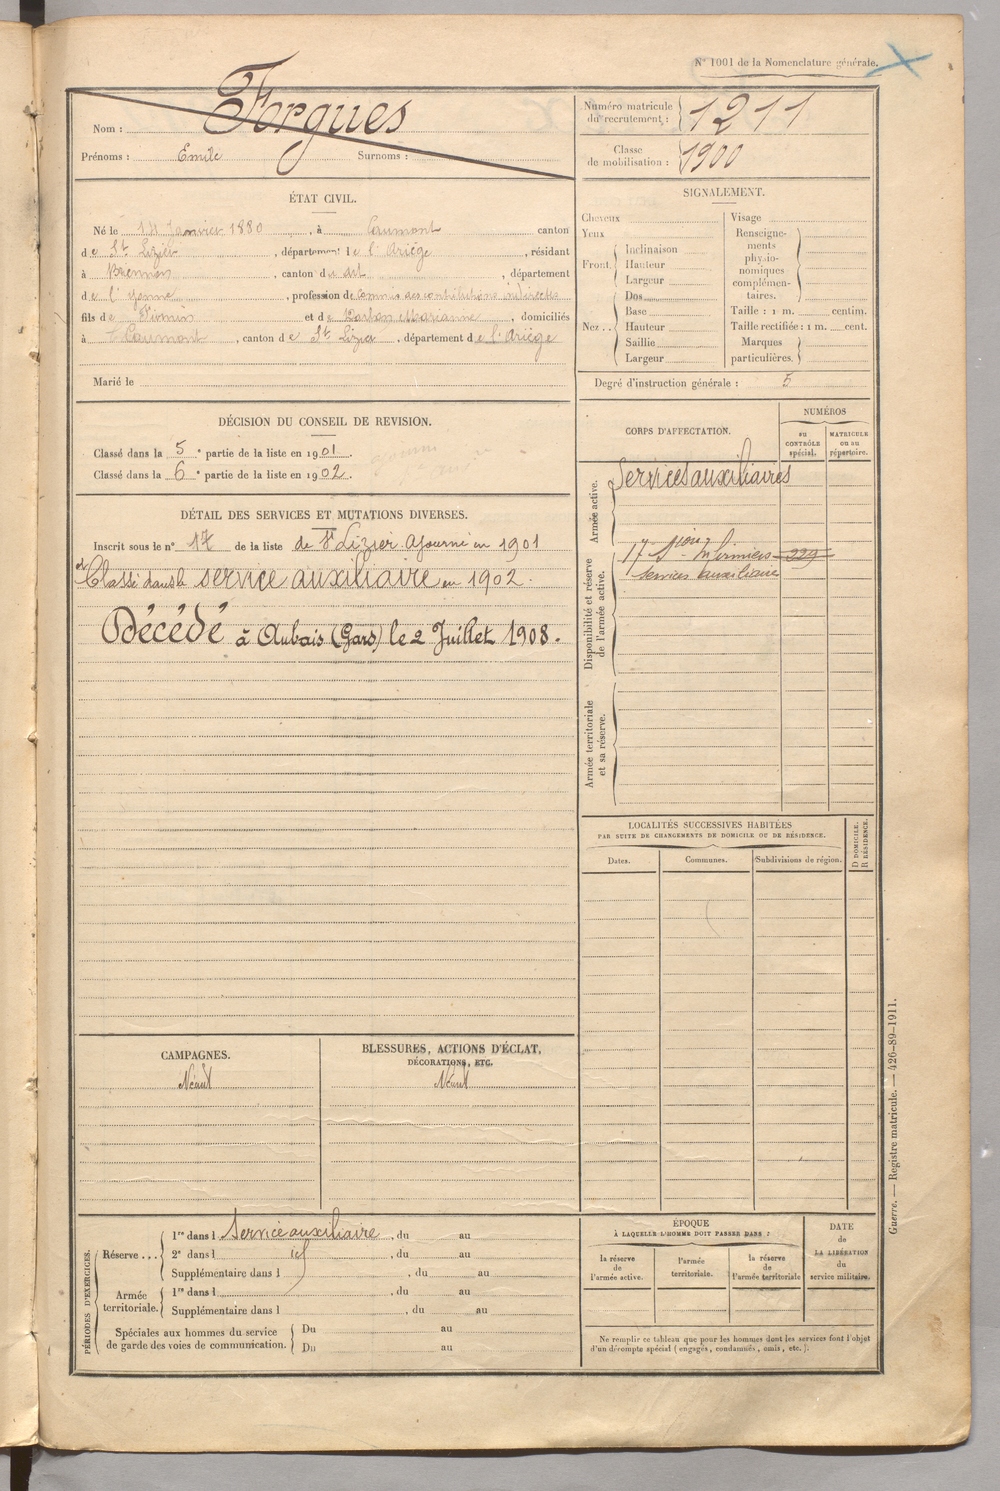 N° 1001 de la Nomenclature générale.
Nom : Forgues
Prénoms : Emile Surnoms :
Numéro matricule du recrutement : 1211
Classe de mobilisation : 1900
ÉTAT CIVIL.
Né le Janvier 1880, à Caumont canton
de St Lizier, département de l'Ariège, résidant
à, canton d, département
de l'yonne, profession de Commis des contributions indirectes
fils de Firmin et de Marianne, domiciliés
à Caumont, canton de St Lizier, département de l'Ariège
Marié le
SIGNALEMENT.
Cheveux
Yeux
Front. Inclinaison
Hauteur
Largeur
Nez .. Dos
Base
Hauteur
Saillie
Largeur
Visage
Renseigne-
ments
physio-
nomiques
complémen-
taires.
Taille : 1 m. centim.
Taille rectifiée : 1 m. cent.
Marques
particulières.
Degré d'instruction générale : 5
DÉCISION DU CONSEIL DE REVISION.
Classé dans la 5e partie de la liste en 1901.
Classé dans la 6e partie de la liste en 1902.
DÉTAIL DES SERVICES ET MUTATIONS DIVERSES.
Inscrit sous le n° 17 de la liste de St Lizier. Ajourné en 1901
et Classé dans le service auxiliaire en 1902.
Décédé à Aubais (Gard) le 2 Juillet 1908.
CORPS D'AFFECTATION.
NUMÉROS
au
CONTRÔLE
spécial.
MATRICULE
ou au
répertoire.
Armée active.
Services auxiliaires
Disponibilité et réserve
de l'armée active.
17e Son Infirmiers 229
Services auxiliaire
Armée territoriale
et sa réserve.
LOCALITÉS SUCCESSIVES HABITÉES
PAR SUITE DE CHANGEMENTS DE DOMICILE OU DE RÉSIDENCE.
Dates.
Communes.
Subdivisions de région.
D DOMICILE.
R RÉSIDENCE.
CAMPAGNES.
Néant
BLESSURES, ACTIONS D'ÉCLAT,
DÉCORATIONS, ETC.
Néant
PÉRIODES D'EXERCICES.
Réserve ...
1re dans l Service auxiliaire, du au
2e dans l id, du au
Supplémentaire dans l, du au
Armée
territoriale.
1re dans l, du au
Supplémentaire dans l, du au
Spéciales aux hommes du service
de garde des voies de communication.
Du au
Du au
ÉPOQUE
À LAQUELLE L'HOMME DOIT PASSER DANS :
la réserve
de
l'armée active.
l'armée
territoriale.
la réserve
de
l'armée territoriale
DATE
de
LA LIBÉRATION
du
service militaire.
Ne remplir ce tableau que pour les hommes dont les services font l'objet
d'un décompte spécial (engagés, condamnés, omis, etc.).
Guerre. — Registre matricule. — 426-89-1911.